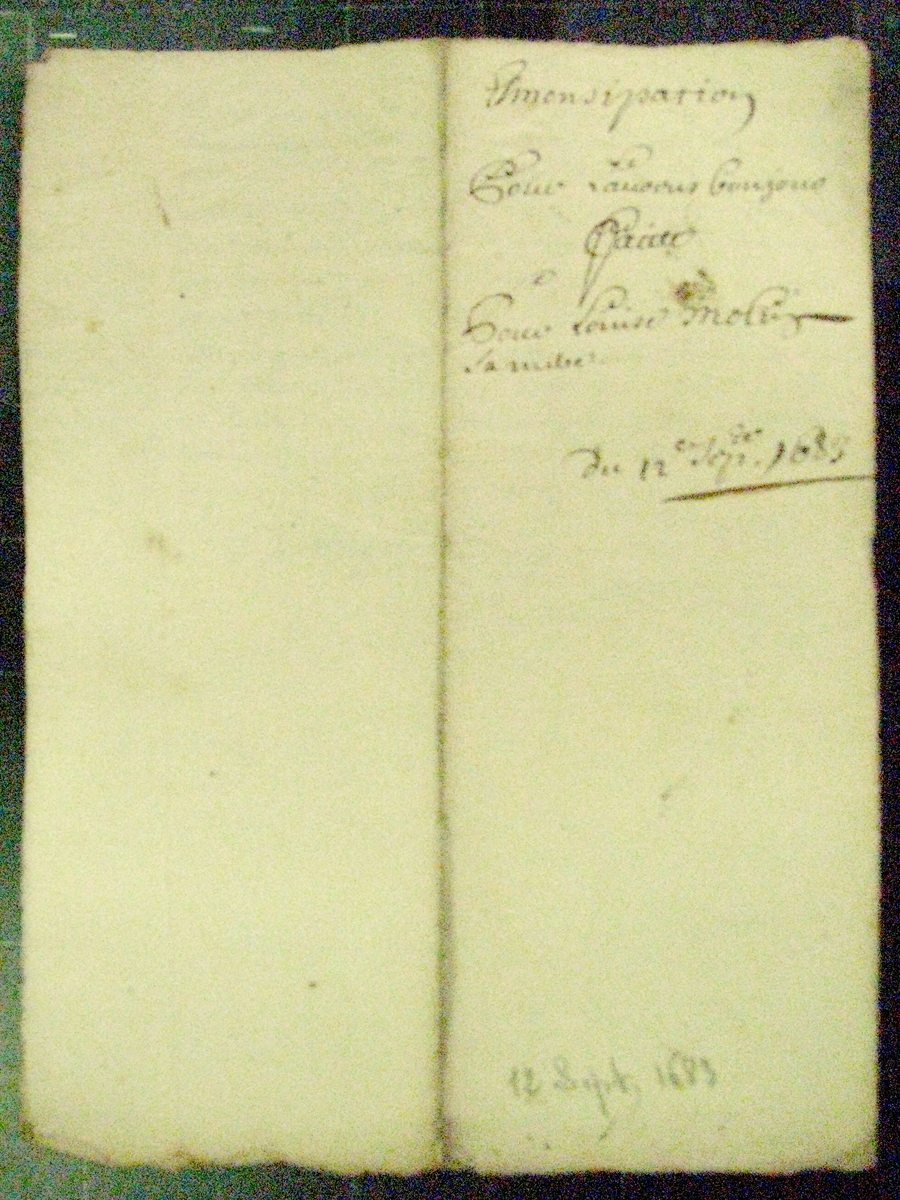 Emensipation
Pour Laurens bonzoms
faicte
Pour Louise Molin
sa mere
Du 12e Sepbre 1683
12 Sept. 1683